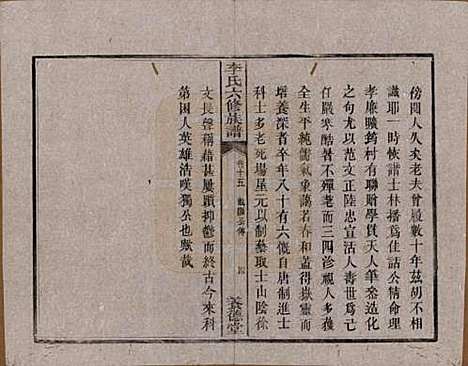 傍閱人久矣老夫曾履數十年茲胡不相
識耶一時恢譜士林播為佳話公精命理
孝廉驥鈞村有聯贈學貫天人筆叅造化
之句尤以范文正陸忠宣活人壽世爲己
任嚴寒酷暑不殫老而三四診視人多穫
全生平純儒氣象藹若春和蓋得嶽靈而
增養深者卒年八十有六慨自唐制進士
科士多老死場屋元以制藝取士山陰徐
李氏六修族譜
卷十五
四
養德堂
文長聲稱藉甚屢躓抑鬱而終古今來科
第困人英雄浩嘆獨公也歟哉